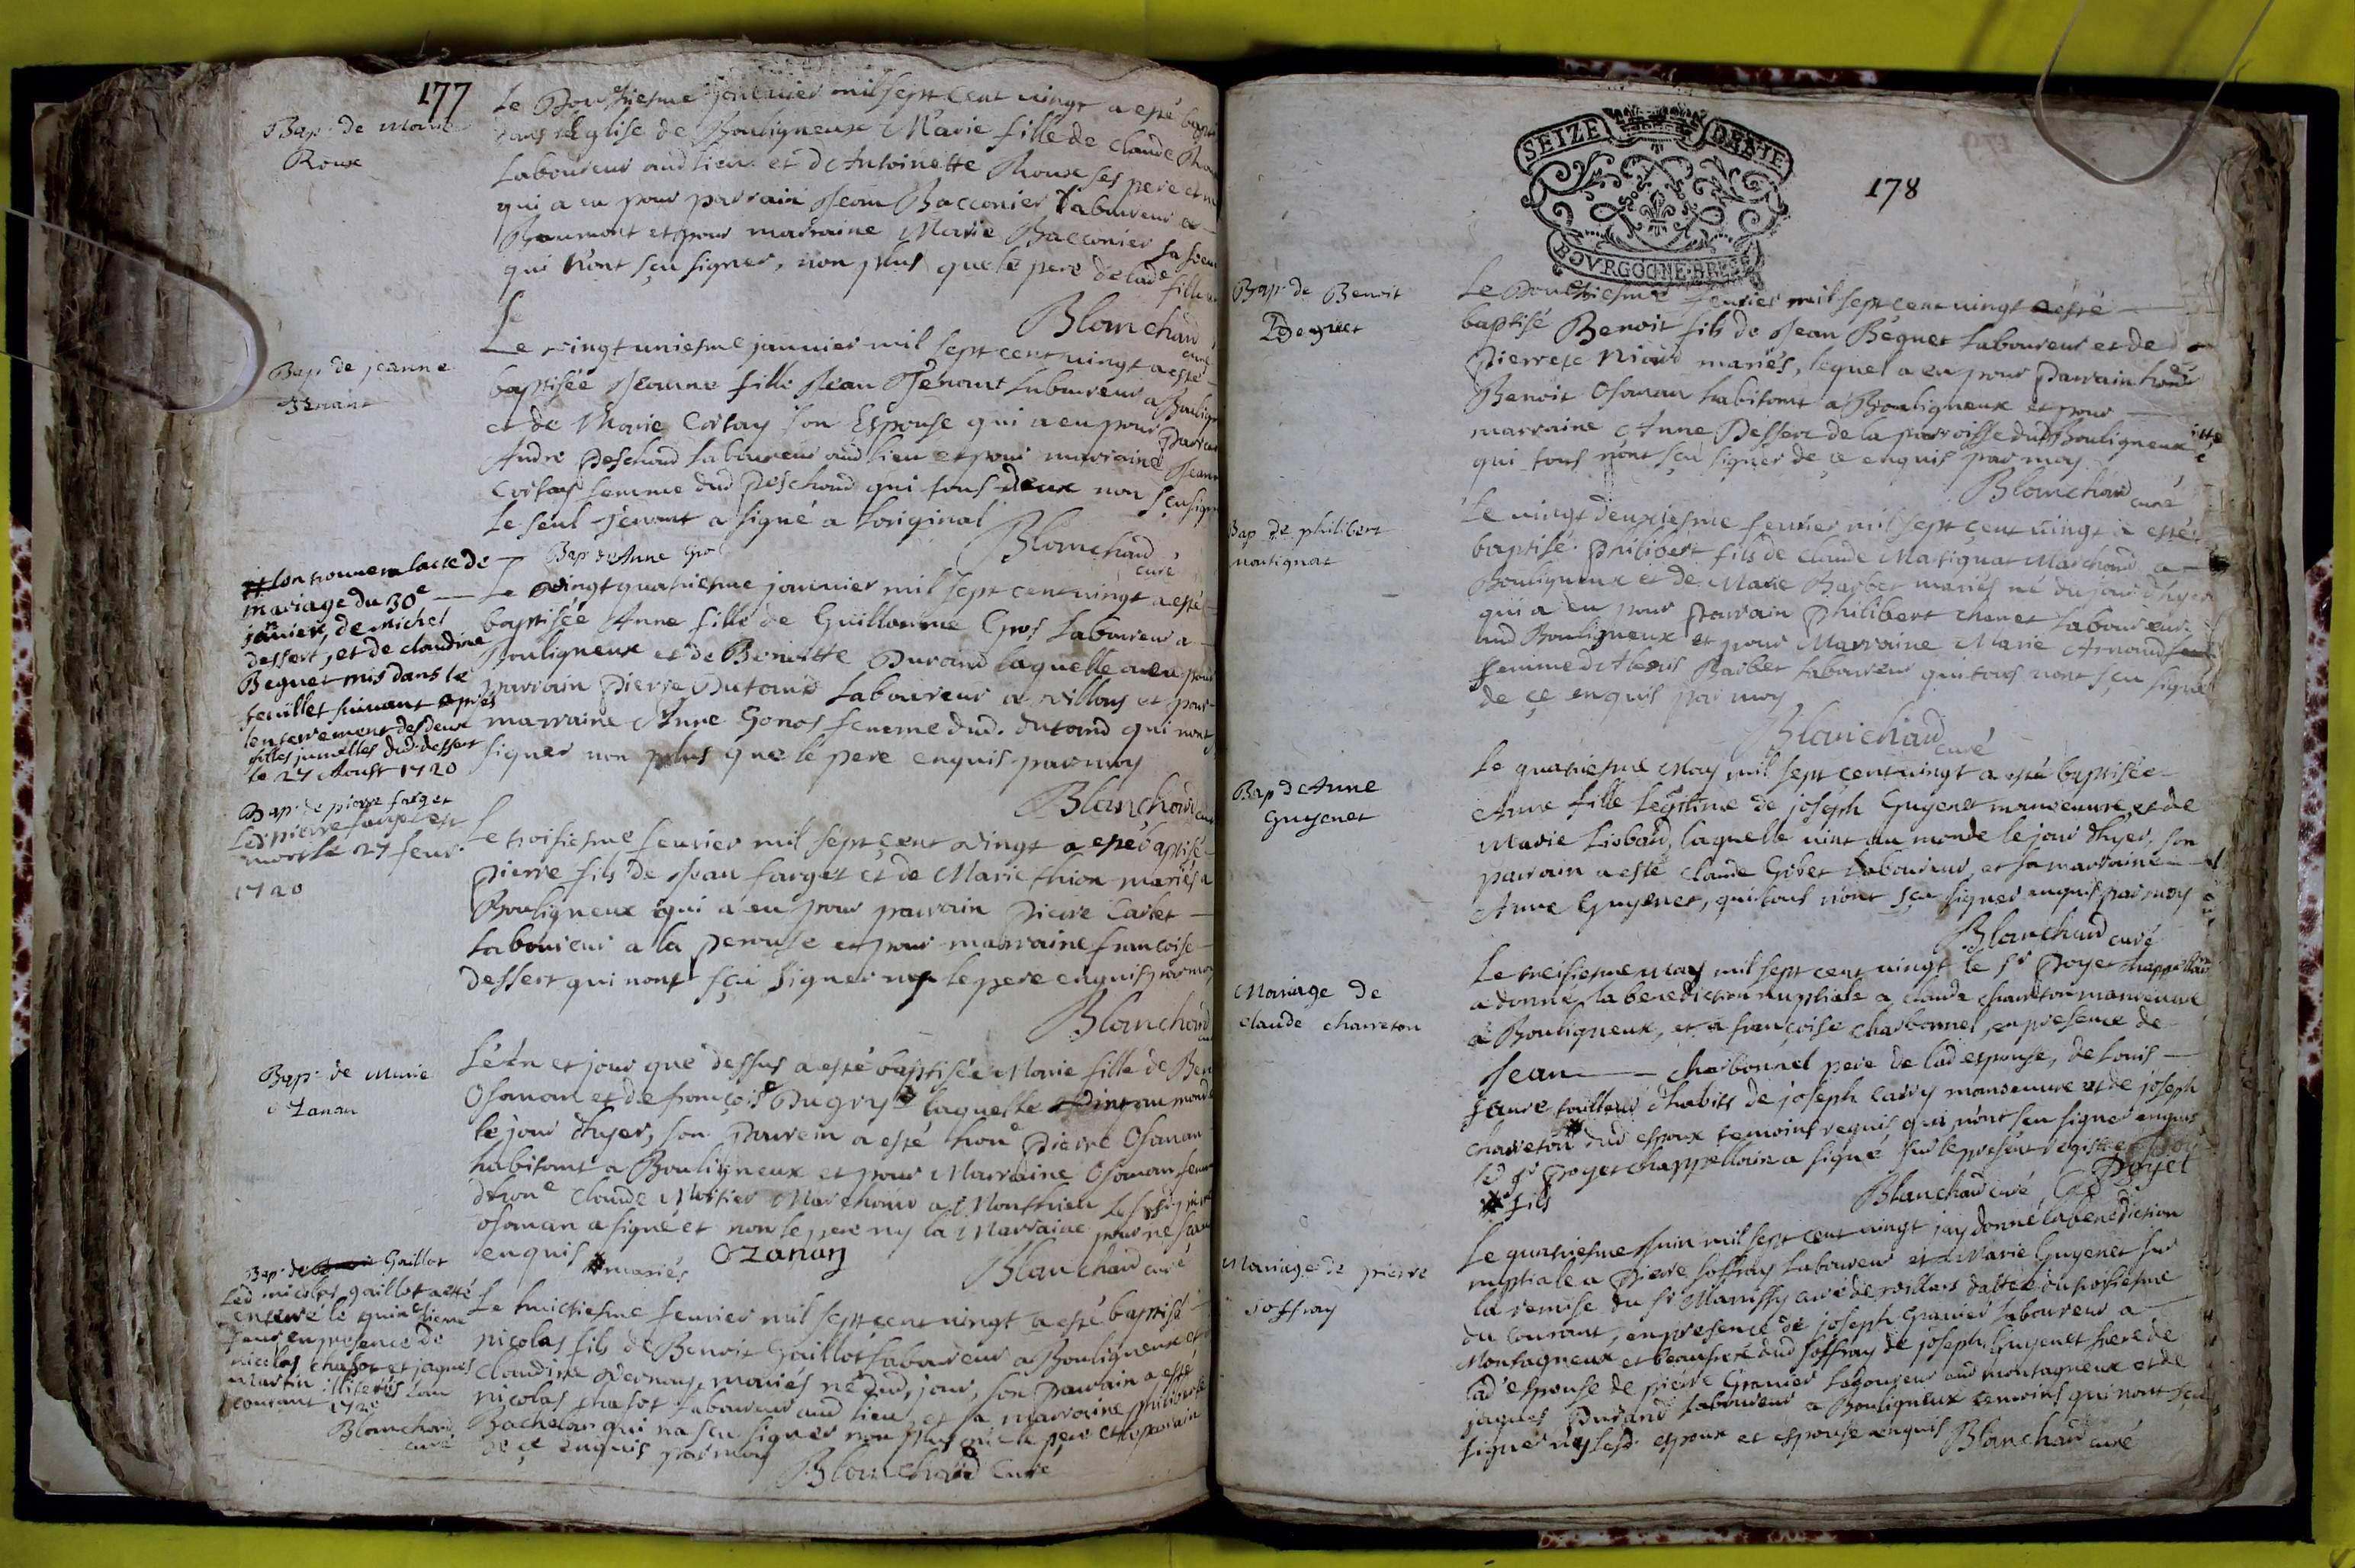 177
Bap. de Marie
Roux
Le Douziesme janvier mil sept cent vingt a esté
dans l'Eglise de Bouligneux Marie fille de Claude
Laboureur aud lieu et de Antoinette Rouse ses pere et
qui a eu pour parrain Jean Bacconier Laboureur a
Beaumont et pour marraine Marie Bacconier sa soeur
qui n'ont sçu signer, non plus que le pere de lad fille
Blanchard
curé
Bap. de jeanne
Jenant
Le vingt uniesme janvier mil sept cent vingt a esté
baptisée Jeanne fille Jean Jénant Laboureur a
et de Marie Cortay son Espouse qui a eu pour
André Peschoud Laboureur aud lieu et pour marraine
Cortay femme dud Peschoud qui tous deux non
Le seul Jénant a signé a l'original
Blanchard
curé
Bap. de Anne Gros
Le vingt quatriesme janvier mil sept cent vingt a esté
baptisée Anne fille de Guillaume Gros Laboureur a
Bouligneux et de Benoitte Durand laquelle a eu pour
parrain Pierre Dutand Laboureur a Villars et pour
marraine Anne Gonos femme dud. dutand qui nont
signer non plus que le pere enquis par moy
Blanchard
lon trouvera lacte de
mariage du 30e
janvier, de michel
dessert, et de claudine
Beguet mis dans le
feuillet suivant apres
lenterrement des deux
filles jumelles dud dessert
le 27 Aoust 1720
Bap. de pierre farget
Led pierre farget est
mort le 27 feur.
1720
Le troisiesme fevrier mil sept cent vingt a esté baptisé
Pierre fils de Jean farget et de Marie thion mariés a
Bouligneux qui a eu pour parrain Pierre Carlet
Laboureur a la Perouse et pour marraine francoise
dessert qui nont sçu signer ny le pere enquis par moy
Blanchard
Bap. de Marie
Ozanan
L'An et jour que dessus a esté baptisée Marie fille de
Osanan et de françoise Dugry laquelle vint au monde
le jour d'hyer, son Parrein a esté honé Pierre Osanan
habitant a Bouligneux et pour Marraine Osanan
de honé Claude Mortier Marchand a Monthieu
osanan a signé et non le pere ny la Marraine pour ne
enquis
mariés
Ozanan
Blanchard curé
Bap. de Gaillot
Led nicolas gaillot a esté
enterré le quinziesme
feur en presence de
nicolas chasot et jaques
Martin
courant 1720
Blanchard
curé
Le huictiesme fevrier mil sept cent vingt a esté baptisé
nicolas fils de Benoit Gaillot Laboureur a Bouligneux et
Claudine mariés né dud. jour, son parrain a esté
nicolas chasot Laboureur aud lieu et sa marraine philiberte
Bachelar qui na sçu signer non plus que le pere et le parrain
de çe enquis par moy
Blanchard Curé
178
SEIZE DENIE
BOVRGOGNE·BRESSE
Bap. de Benoit
Beguet
Le Douziesme fevrier mil sept cent vingt a esté
baptisé Benoit fils de Jean Béguet Laboureur et de
Pierrese Niaud mariés, lequel a eu pour Parrain
Benoit Osanan habitant a Bouligneux et pour
marraine Anne Dessert de la parroisse dud Bouligneux
qui tous nont sçu signer de çe enquis par moy
Blanchard curé
Bap. de philibert
martignat
Le vingt deuxiesme fevrier mil sept cent vingt a esté
baptisé Philibert fils de Claude Martignat Marchand a
Bouligneux et de Marie Barbet mariés né du jour d'hyer
qui a eu pour Parrain Philibert chanet Laboureur
aud Bouligneux et pour Marraine Marie Arnaud
femme de Barbet Laboureur qui tous nont sçu signer
de çe enquis par moy
Blanchard curé
Bap. d'Anne
Guyenet
Le quatriesme May mil sept cent vingt a esté baptisée
Anne fille legitime de joseph Guyenet manoeuvre et de
Marie Liobard, laquelle vint au monde le jour d'hyer, son
parrain a esté Claude Gobet Laboureur, et sa marraine
Anne Guyenet, qui tous n'ont sçu signer enquis par moy
Blanchard curé
Mariage de
claude charreton
Le treisiesme May mil sept cent vingt le Sr Poyet chappellain
a donné la benediction nuptiale a Claude charreton manoeuvre
a Bouligneux, et a françoise charbonnel, en presence de
Jean charbonnel pere de lad espouse, de Louis
faure tailleur d'habits de joseph Carry manoeuvre et de joseph
charreton dud espoux temoins requis qui n'ont sçu signer enquis
led Sr Poyet chappellain a signé sur le present registre
fils
Blanchard curé, Poyet
Mariage de pierre
soffray
Le quatriesme Juin mil sept cent vingt jay donné la benediction
nuptiale a Pierre Soffray Laboureur et a Marie Guyenet sur
la remise du Sr Maniffy curé de villars dattée du troisiesme
du courant, en presence de joseph Granier Laboureur a
Montagneux et beaufrere dud Soffray de joseph Guyenet frere de
lad espouse de pierre Granier Laboureur aud montagneux et de
jaques Durand Laboureur a Bouligneux temoins qui nont sçu
signer ny lesd. espoux et espouse enquis Blanchard curé